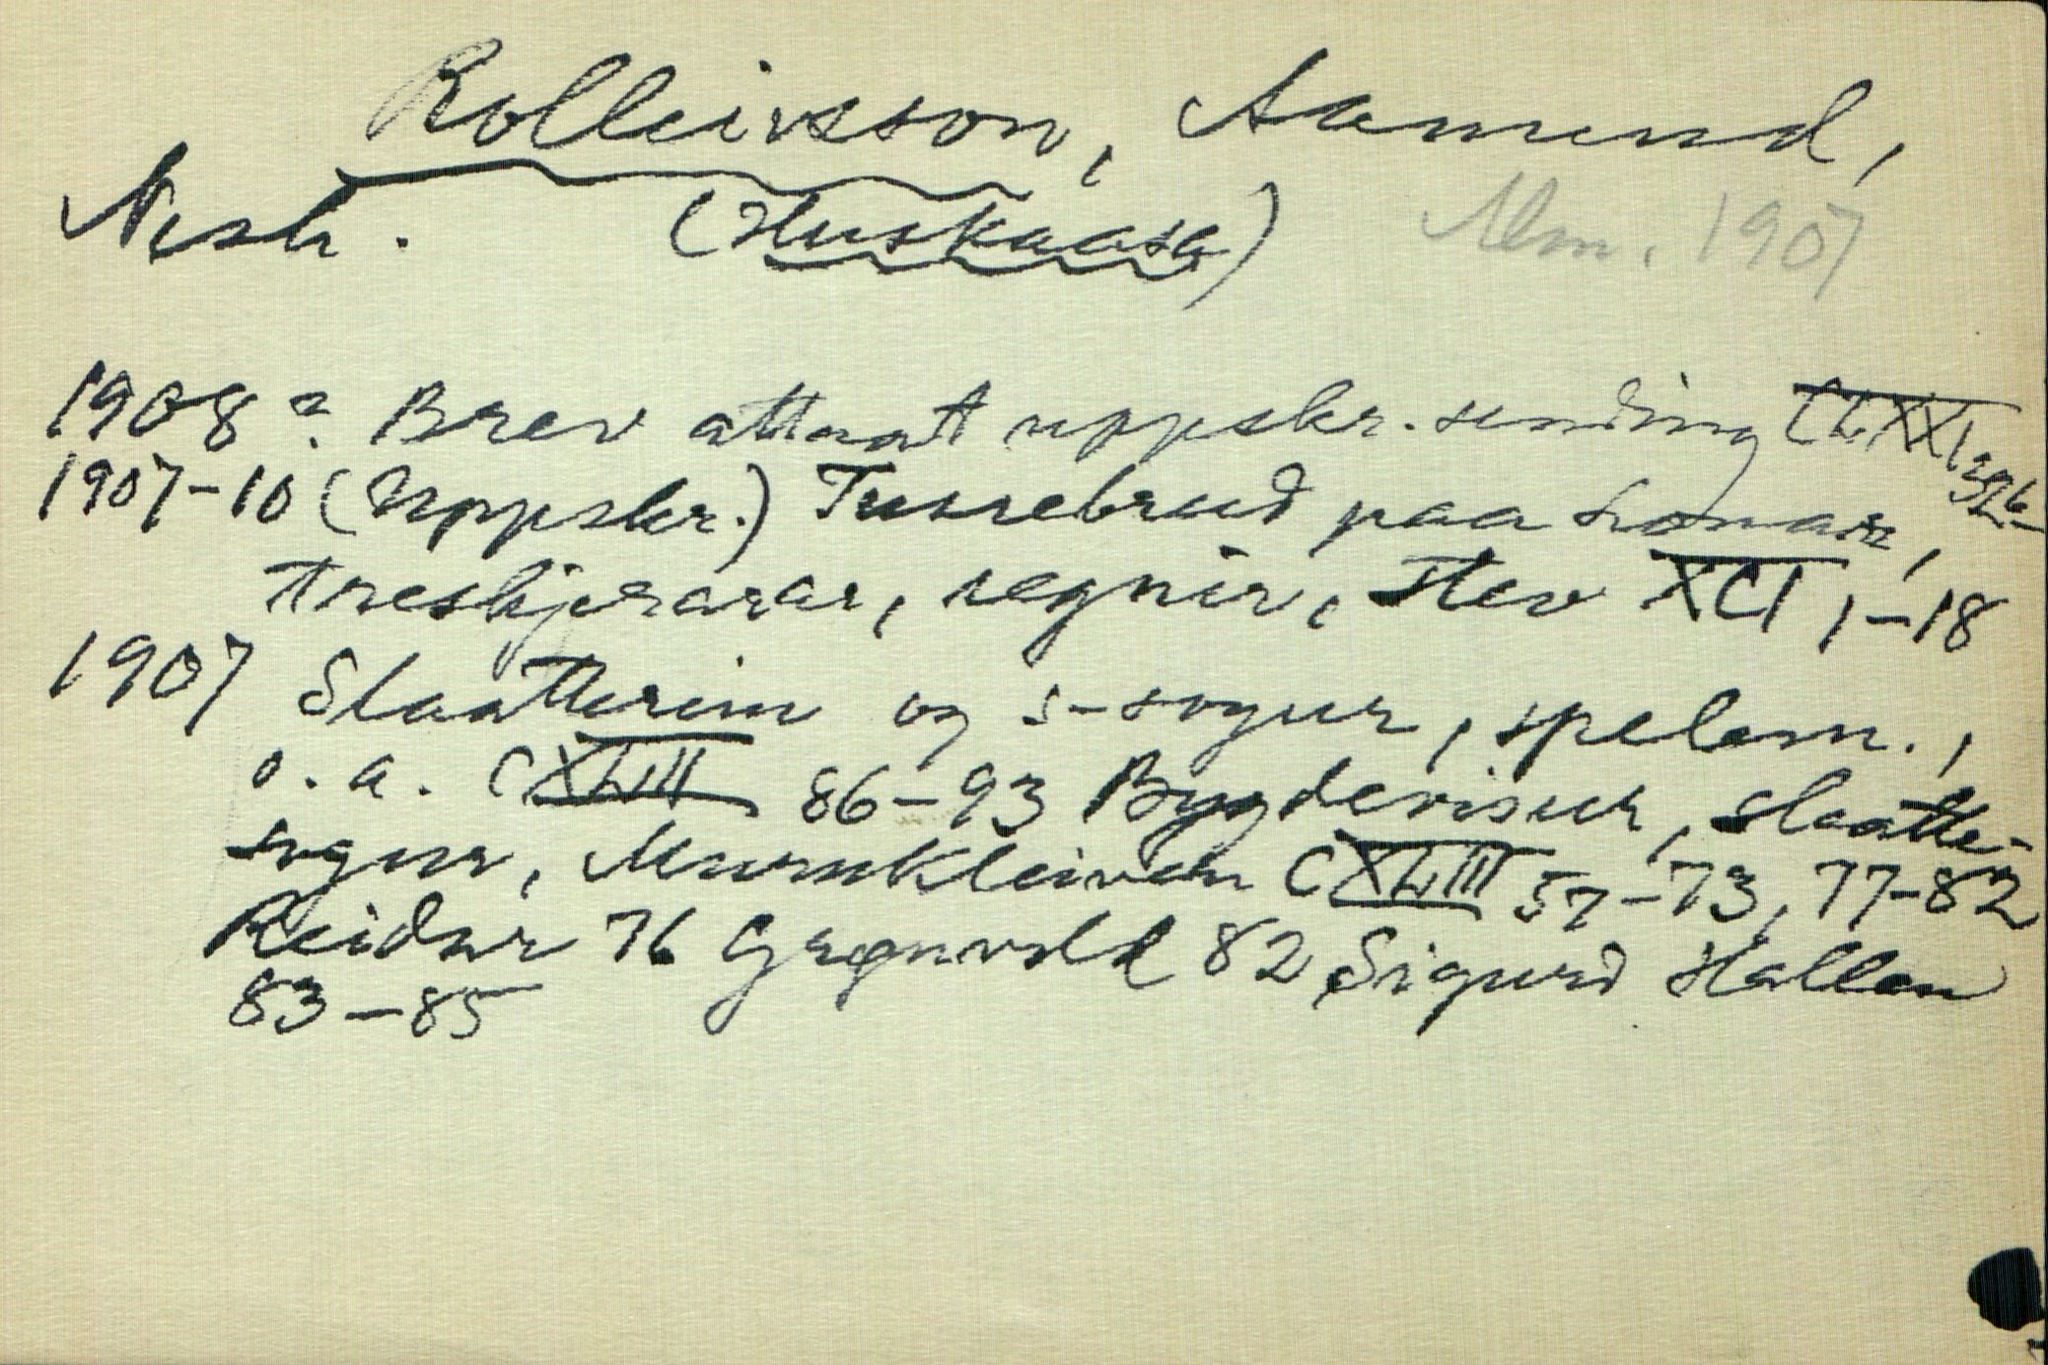 Rolleivsson, Aamund,
Nesh. (Huskaasa) Alm. 1907
1908? Brev attaat uppskr. sending CLXXI
1907-10 (Uppskr.) Tussebrud paa
treskjerarar, regnir, stev XCI 1-18
1907 Slaatterim og s-sogur, spelem.,
o. a. CXLIII 86-93 Bygdevisur, slaatte-
sogur, CXLIII 57-73, 77-82
Reidar 76 82 Sigurd Hallan
83-85